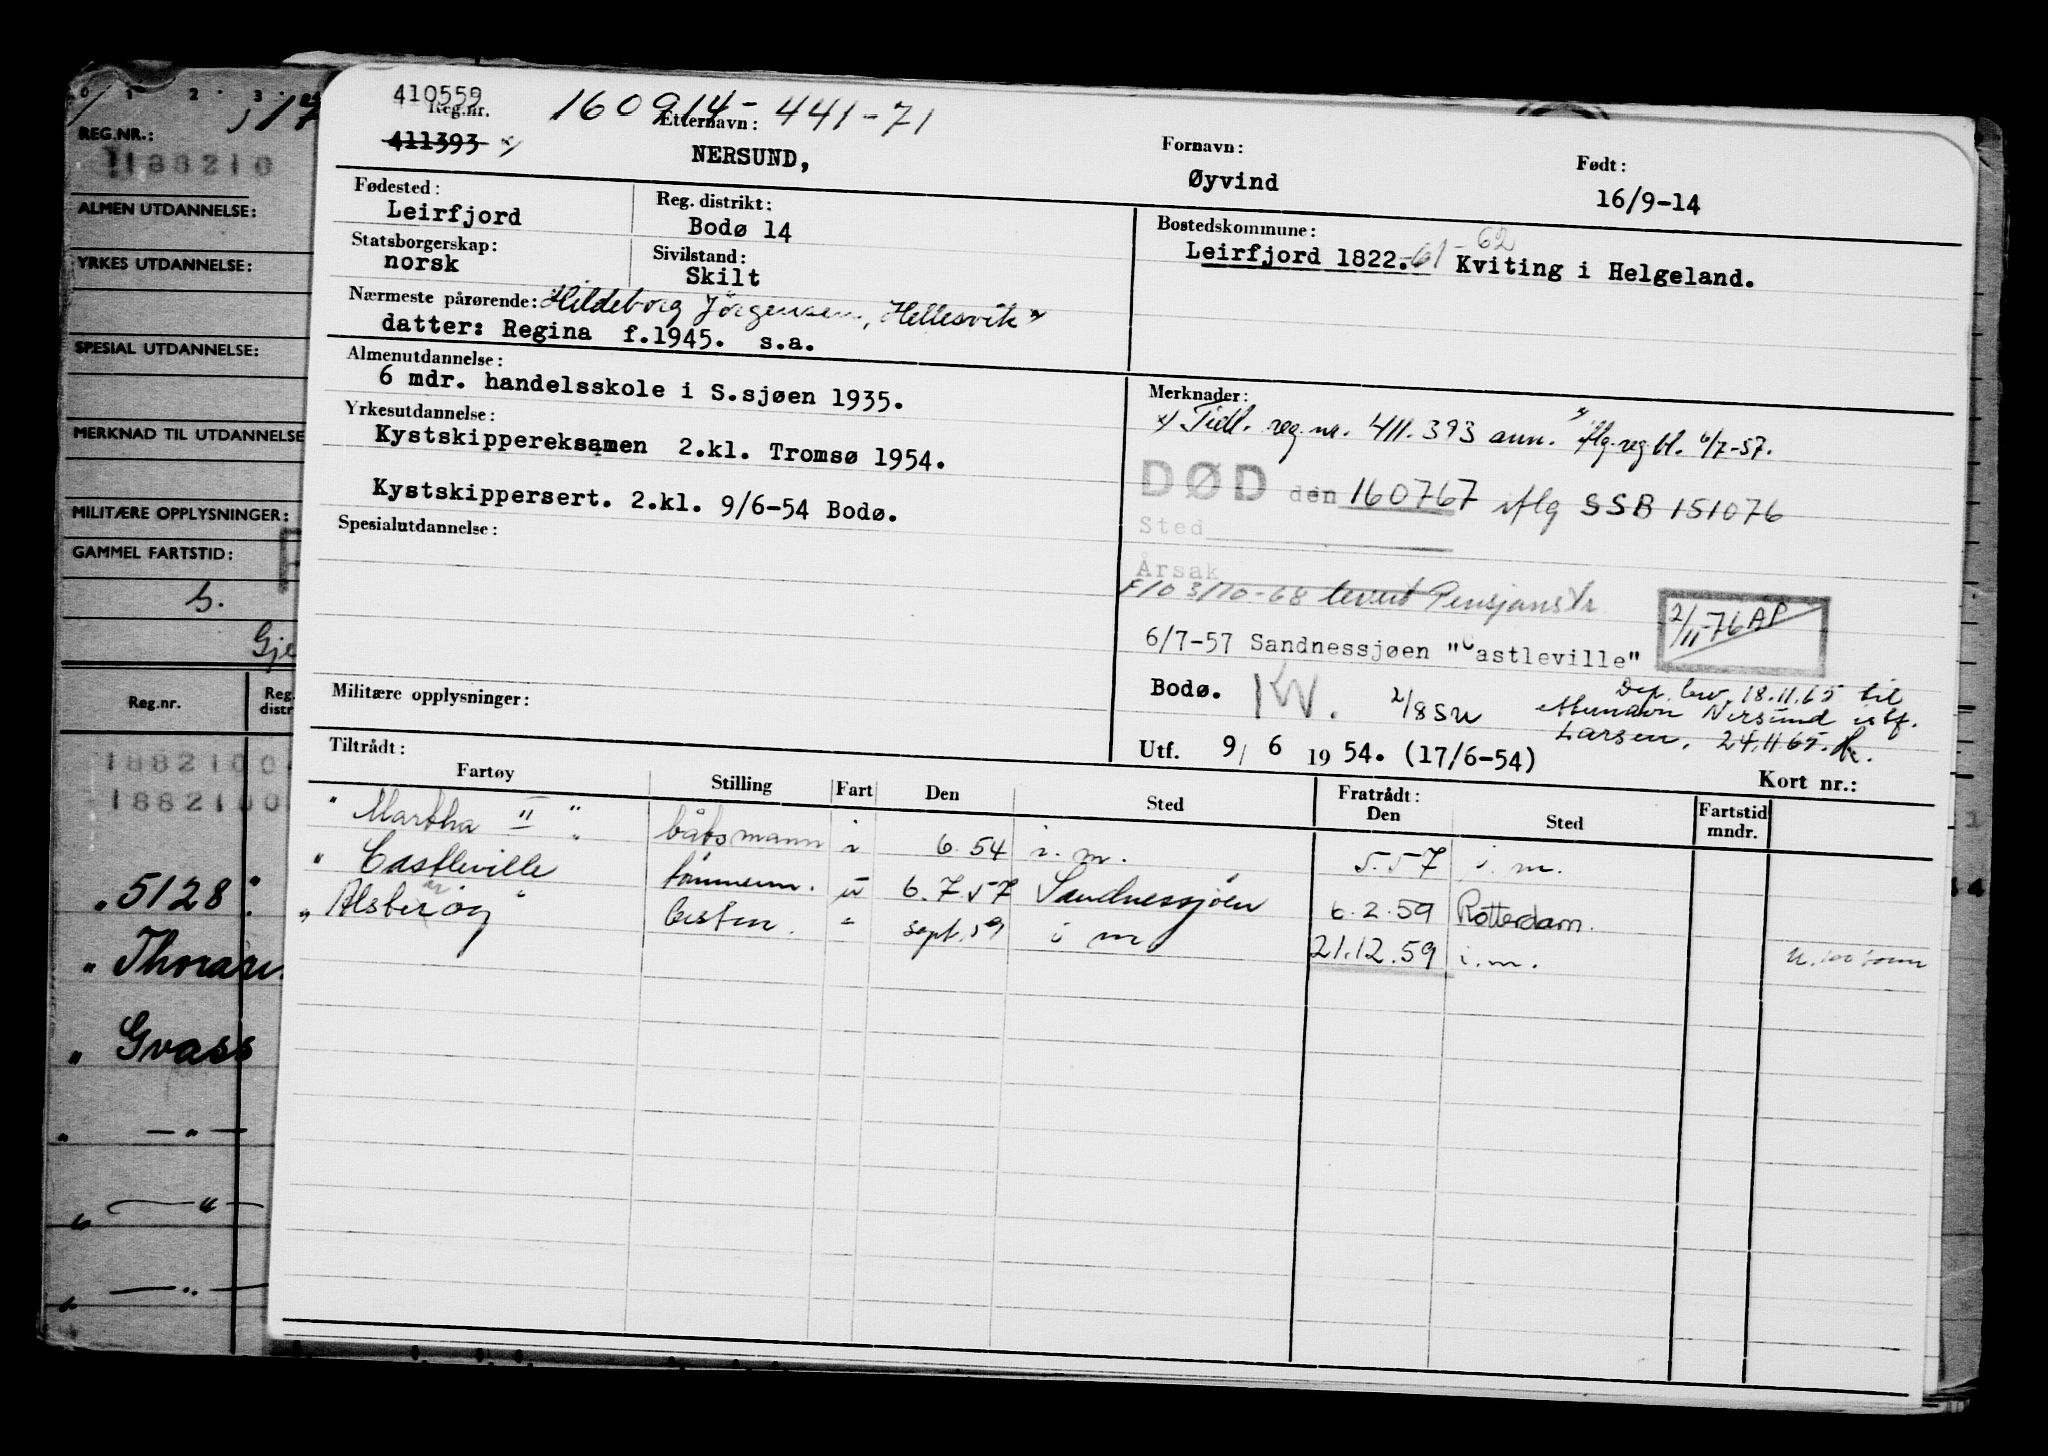 0 1 2 3
REG.NR.:
1188210
ALMEN UTDANNELSE:
YRKES UTDANNELSE:
SPESIAL UTDANNELSE:
MERKNAD TIL UTDANNELSE
MILITÆRE OPPLYSNINGER:
GAMMEL FARTSTID:
Reg.nr. Reg. distr
1882100
1882100
„5128"
„Thorar
„Gvass
410559 160914-441-71
Reg.nr. Etternavn: Fornavn: Født:
411393 x/ NERSUND, Øyvind 16/9-14
Fødested: Reg. distrikt: Bostedskommune:
Leirfjord Bodø 14 Leirfjord 1822.-61-62 Kviting i Helgeland.
Statsborgerskap: Sivilstand:
norsk Skilt
Nærmeste pårørende: Hildeborg Jørgensen, Hellesvik
datter: Regina f.1945. s.a.
Almenutdannelse:
6 mdr. handelsskole i S.sjøen 1935.
Yrkesutdannelse:
Kystskippereksamen 2.kl. Tromsø 1954.
Kystskippersert. 2.kl. 9/6-54 Bodø.
Spesialutdannelse:
Militære opplysninger:
Merknader:
x/ Tidl. reg.nr. 411.393 ann. iflg. reg.bl. 6/7-57.
DØD den 160767 iflg SSB 151076
Sted
Årsak
F10 3/10-68 levert Pensjonstr
2/11-76 AP
6/7-57 Sandnessjøen "Castleville"
Bodø. KV. 2/8 SU
Dep. brev. 18.11.65 til
Nersund istf.
Larsen. 24.11.65.
Utf. 9/ 6 19 54. (17/6-54)
Kort nr.:
Tiltrådt: Fratrådt:
Fartøy Stilling Fart Den Sted Den Sted Fartstid mndr.
"Martha II" båtsmann i 6.54 i.m. 5.57 i.m.
"Castleville tømmerm. u 6.7.57 Sandnessjøen 6.2.59 Rotterdam.
"Alsterøy" bestm. " sept. 59 i m 21.12.59 i.m.